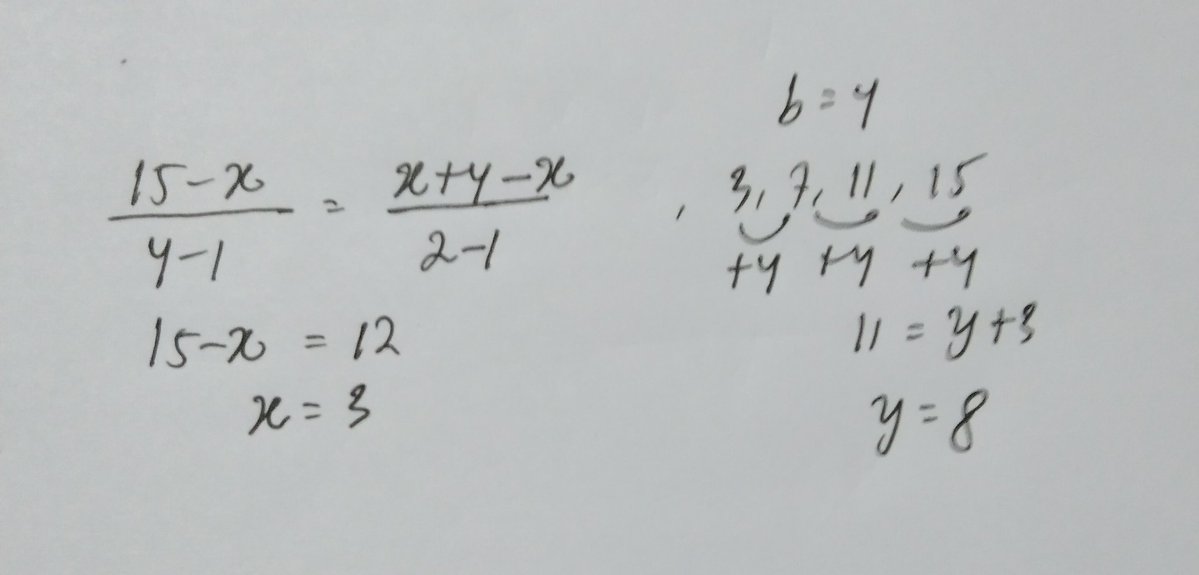 b = 4
15 - x / 4 - 1 = x + 4 - x / 2 - 1 , 3, 7, 11, 15
+4 +4 +4
15 - x = 12
x = 3
11 = y + 3
y = 8